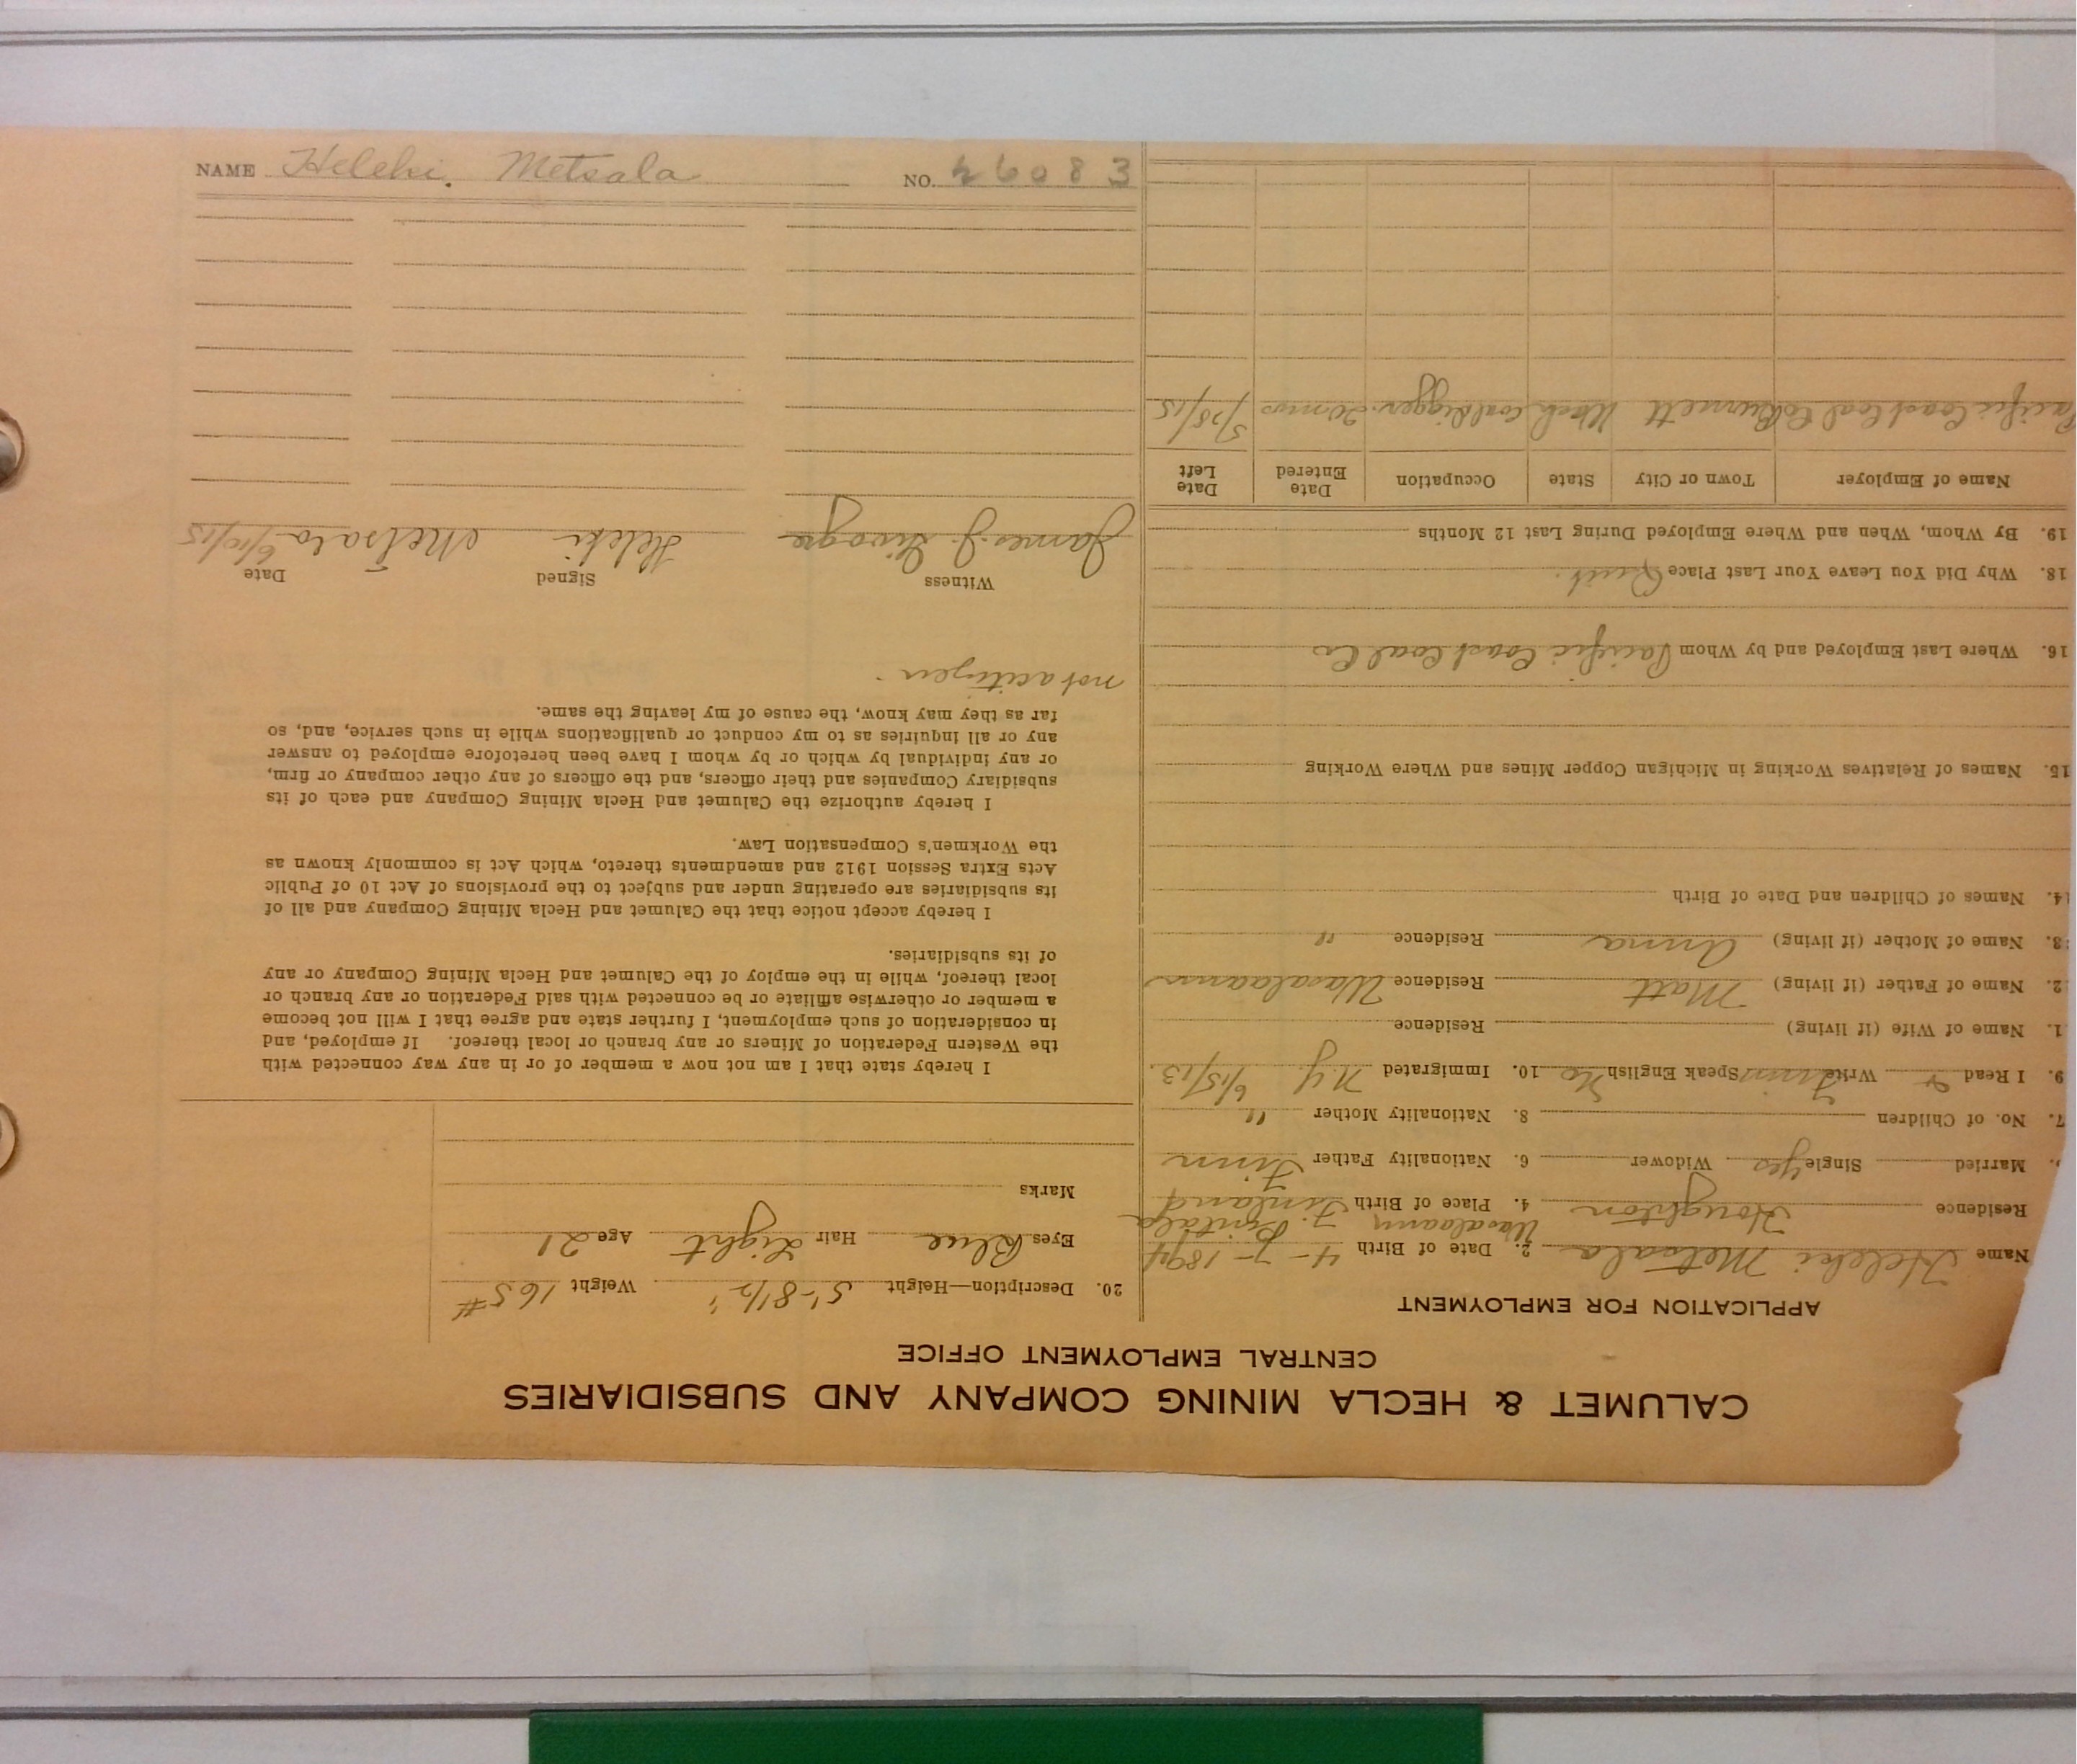 CALUMET & HECLA MINING COMPANY AND SUBSIDIARIES
CENTRAL EMPLOYMENT OFFICE
APPLICATION FOR EMPLOYMENT
Name Heleki Metsala 2. Date of Birth 4-7-1894
Residence Houghton 4. Place of Birth Finland
Married Single yes Widower 6. Nationality Father Finn
7. No. of Children 8. Nationality Mother "
9. I Read & Write Finn Speak English No 10. Immigrated N.Y. 6/15/13
1. Name of Wife (if living) Residence
2. Name of Father (if living) Matt Residence
3. Name of Mother (if living) Anna Residence "
14. Names of Children and Date of Birth
15. Names of Relatives Working in Michigan Copper Mines and Where Working
16. Where Last Employed and by Whom Pacific Coast Coal Co
18. Why Did You Leave Your Last Place Quit.
19. By Whom, When and Where Employed During Last 12 Months
Name of Employer Town or City State Occupation Date Entered Date Left
Pacific Coast Coal Co Burnett Wash Coal digger 20 mos 5/28/15
20. Description—Height 5'-8 1/2" Weight 165 #
Eyes Blue Hair Light Age 21
Marks
I hereby state that I am not now a member of or in any way connected with
the Western Federation of Miners or any branch or local thereof. If employed, and
in consideration of such employment, I further state and agree that I will not become
a member or otherwise affiliate or be connected with said Federation or any branch or
local thereof, while in the employ of the Calumet and Hecla Mining Company or any
of its subsidiaries.
I hereby accept notice that the Calumet and Hecla Mining Company and all of
its subsidiaries are operating under and subject to the provisions of Act 10 of Public
Acts Extra Session 1912 and amendments thereto, which Act is commonly known as
the Workmen's Compensation Law.
I hereby authorize the Calumet and Hecla Mining Company and each of its
subsidiary Companies and their officers, and the officers of any other company or firm,
or any individual by which or by whom I have been heretofore employed to answer
any or all inquiries as to my conduct or qualifications while in such service, and, so
far as they may know, the cause of my leaving the same.
not a citizen.
Witness Signed Date
James J. Heleki Metsala 6/10/15
NAME Heleki. Metsala NO. 26083